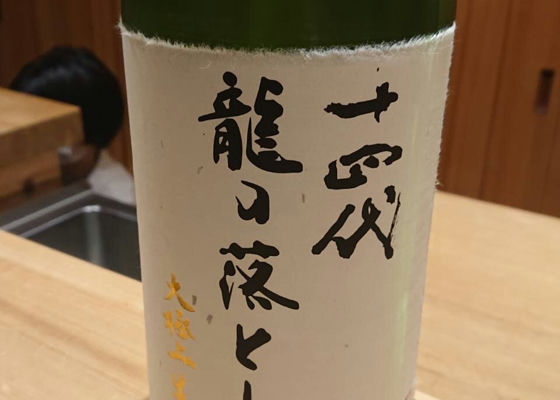 十四代
龍の落とし
大極上生